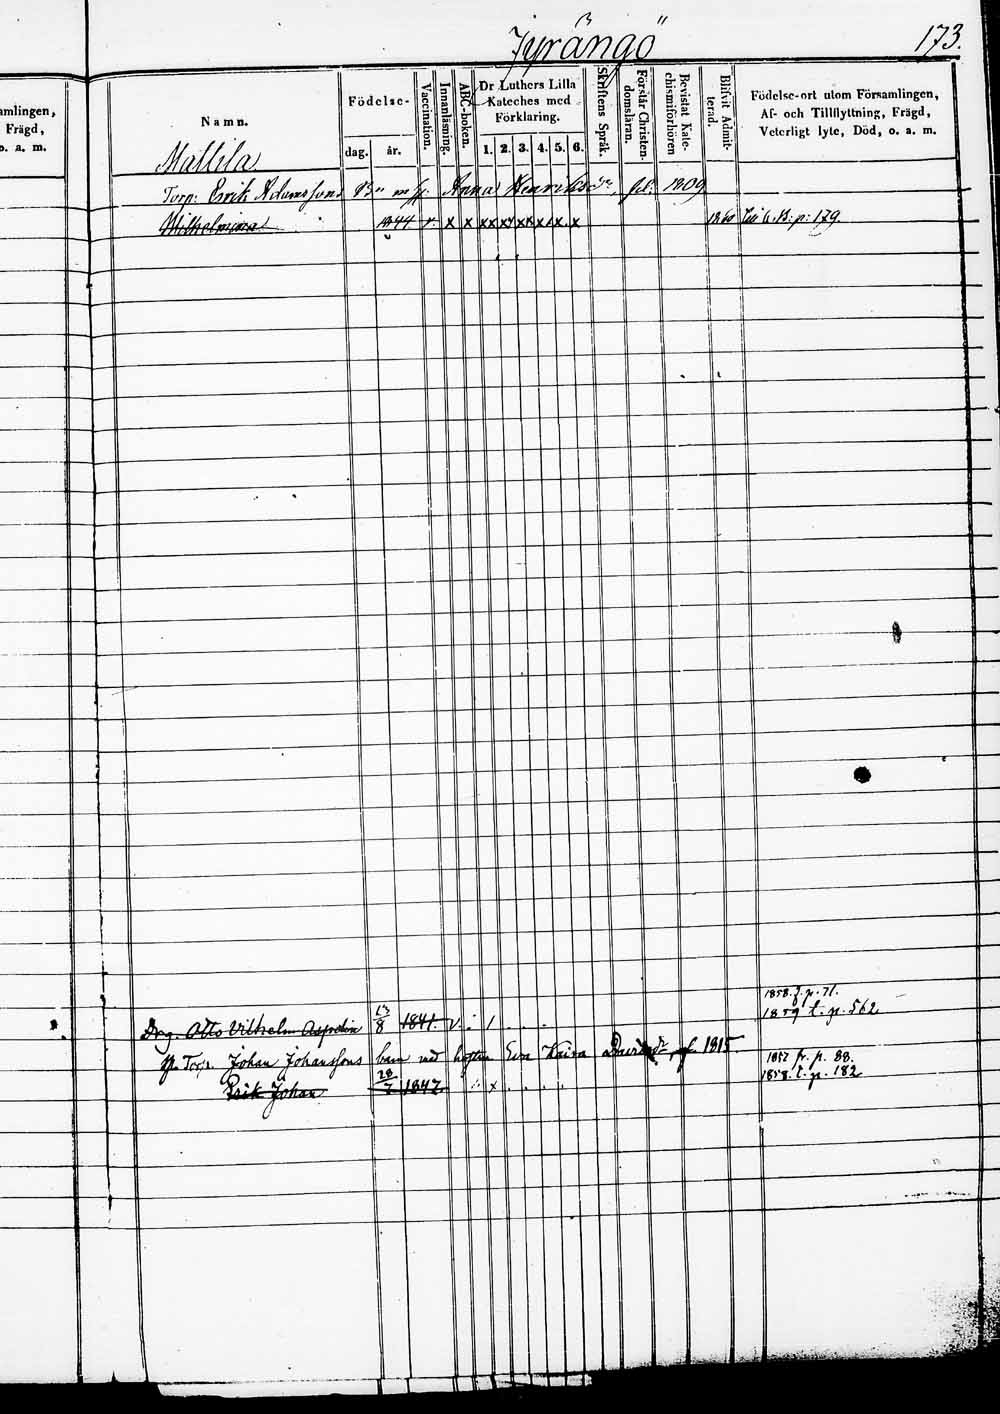 Jyrängö
173.
amlingen,
Frägd,
o. a. m.
Namn.
Födelse-
dag. år.
Vaccination.
Innanläsning.
ABC-boken.
Dr Luthers Lilla
Kateches med
Förklaring.
1. 2. 3. 4. 5. 6.
Skriftens Språk.
Förstår Christen-
domsläran.
Bevistat Kate-
chismiförhören
Blifvit Admit-
terad.
Födelse-ort utom Församlingen,
Af- och Tillflyttning, Frägd,
Veterligt lyte, Död, o. a. m.
Mattila
Torp: Erik Adamssons B" m Anna Henriksdr föd. 1809
Wilhelmina 1844 v. x x xx xx xx xx x x 1860 p: 179
1858. f. p. 71.
Drg. Otto Vilhelm 13/8 1841. v. 1859 t. p. 562
Torp. Johan Johanssons barn med hustrun Eva Kaisa 1815
1857 fr. p. 88.
Erik Johan 28/7 1847 x 1858. t. p. 182